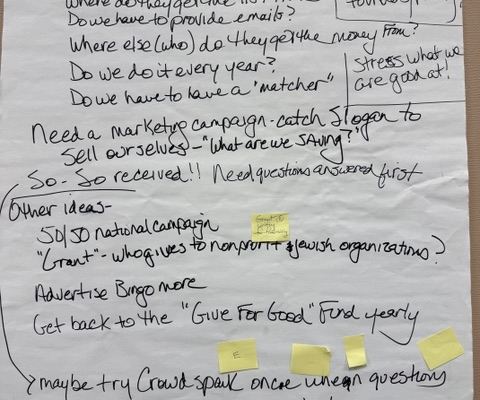 Where do they get
Do we have to provide emails?
Where else (who) do they get the money from?
Do we do it every year?
Do we have to have a "matcher"
Stress what we
are good at!
Need a marketing campaign - catch slogan to
sell ourselves - "What are we SAving?"
So - So received!! Need questions answered first
Other ideas-
50/50 national campaign
"Grant" - who gives to nonprofit & Jewish organizations?
Advertise Bingo more
Get back to the "Give For Good" Fund yearly
E
maybe try Crowdspark once questions